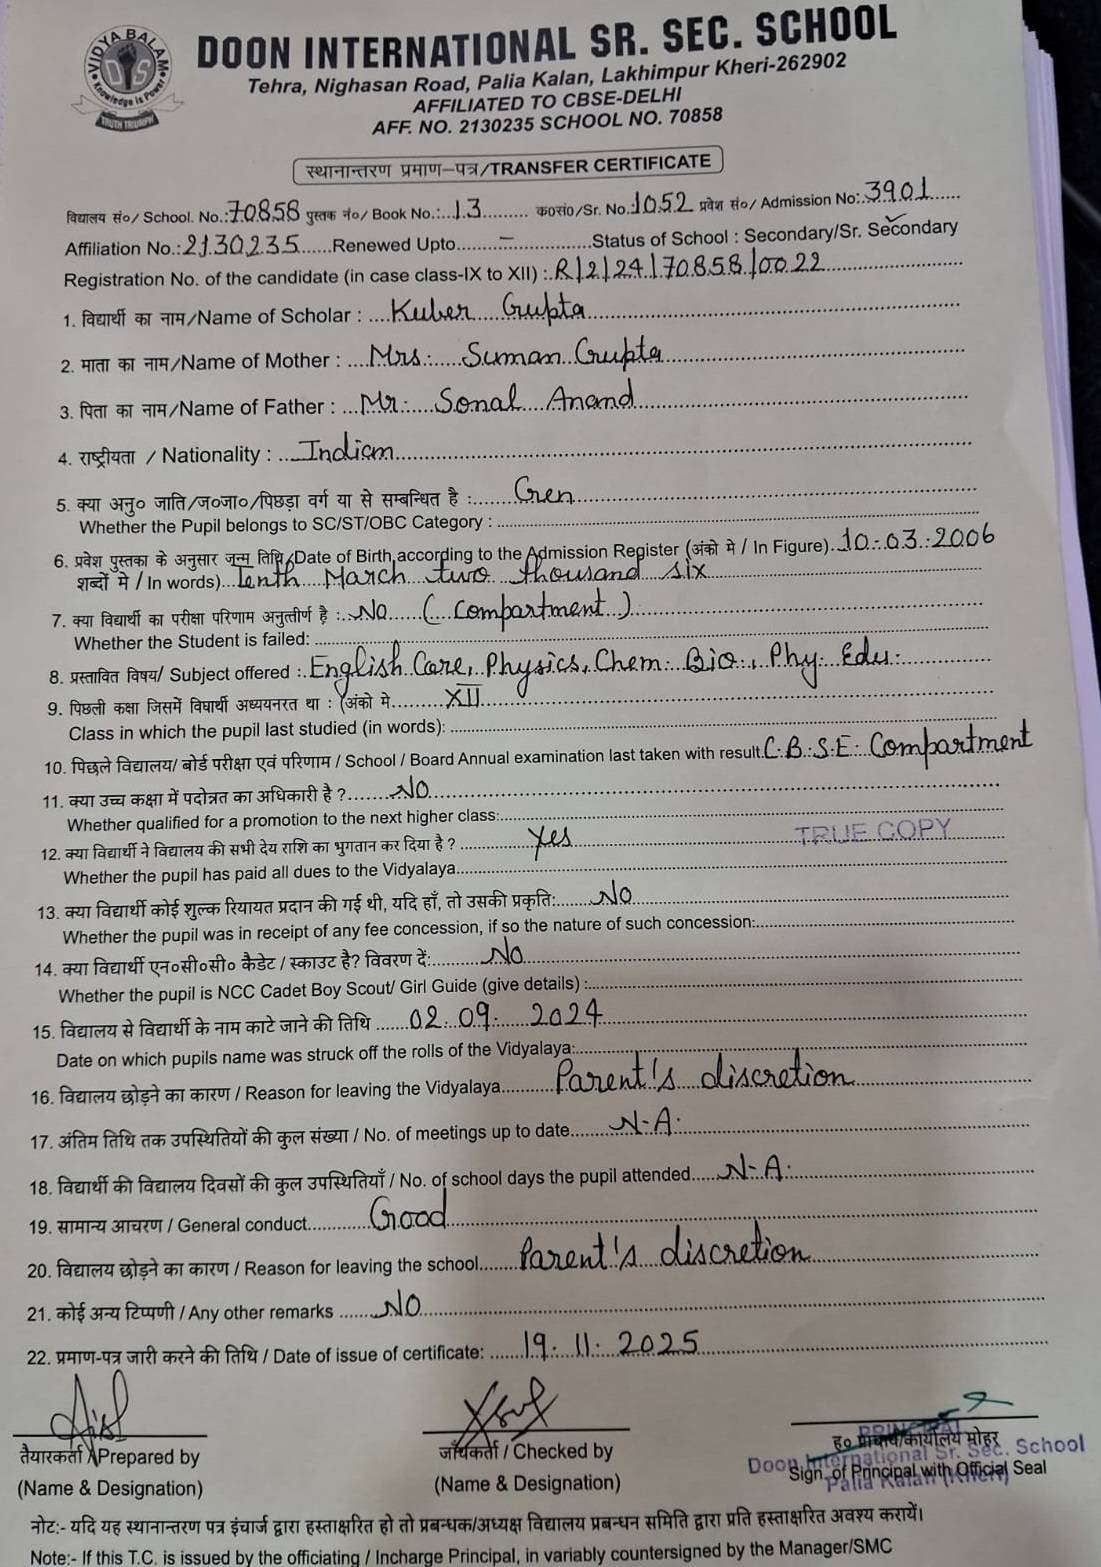 VIDYA BALAM
DIS
Knowledge is Power
TRUTH TRIUMPH
DOON INTERNATIONAL SR. SEC. SCHOOL
Tehra, Nighasan Road, Palia Kalan, Lakhimpur Kheri-262902
AFFILIATED TO CBSE-DELHI
AFF. NO. 2130235 SCHOOL NO. 70858
स्थानान्तरण प्रमाण-पत्र/TRANSFER CERTIFICATE
विद्यालय सं०/ School. No.:70858 पुस्तक नं०/ Book No.:...13......... क०सं०/Sr. No.1052 प्रवेश सं०/ Admission No:.3901......
Affiliation No.:2130235......Renewed Upto.......–..............Status of School : Secondary/Sr. Secondary
Registration No. of the candidate (in case class-IX to XII) :.R|2|24|70858|0022
1. विद्यार्थी का नाम/Name of Scholar : ....Kuber Gupta
2. माता का नाम/Name of Mother : ....Mrs. Suman Gupta
3. पिता का नाम/Name of Father : ...Mr. Sonal Anand
4. राष्ट्रीयता / Nationality : ...Indian
5. क्या अनु० जाति/ज०जा०/पिछड़ा वर्ग या से सम्बन्धित है :......Gen
Whether the Pupil belongs to SC/ST/OBC Category :
6. प्रवेश पुस्तका के अनुसार जन्म तिथि/Date of Birth,according to the Admission Register (अंको मे / In Figure). 10.03.2006
शब्दों मे / In words)...Tenth March two thousand six
7. क्या विद्यार्थी का परीक्षा परिणाम अनुत्तीर्ण है :..No (Compartment)
Whether the Student is failed:
8. प्रस्तावित विषय/ Subject offered :.English Core, Physics, Chem. Bio., Phy. Edu.
9. पिछली कक्षा जिसमें विघार्थी अध्ययनरत था : (अंको मे.........XII
Class in which the pupil last studied (in words):
10. पिछले विद्यालय/ बोर्ड परीक्षा एवं परिणाम / School / Board Annual examination last taken with result. C.B.S.E. Compartment
11. क्या उच्च कक्षा में पदोन्नत का अधिकारी है ?.......No
Whether qualified for a promotion to the next higher class:
12. क्या विद्यार्थी ने विद्यालय की सभी देय राशि का भुगतान कर दिया है ? ............Yes TRUE COPY
Whether the pupil has paid all dues to the Vidyalaya
13. क्या विद्यार्थी कोई शुल्क रियायत प्रदान की गई थी, यदि हाँ, तो उसकी प्रकृति:.......No
Whether the pupil was in receipt of any fee concession, if so the nature of such concession:
14. क्या विद्यार्थी एन०सी०सी० कैडेट / स्काउट है? विवरण दें:.........No
Whether the pupil is NCC Cadet Boy Scout/ Girl Guide (give details) :
15. विद्यालय से विद्यार्थी के नाम काटे जाने की तिथि ......02.09. 2024
Date on which pupils name was struck off the rolls of the Vidyalaya:
16. विद्यालय छोड़ने का कारण / Reason for leaving the Vidyalaya..........Parent's discretion
17. अंतिम तिथि तक उपस्थितियों की कुल संख्या / No. of meetings up to date........N.A.
18. विद्यार्थी की विद्यालय दिवसों की कुल उपस्थितियाँ / No. of school days the pupil attended.....N.A.
19. सामान्य आचरण / General conduct............Good
20. विद्यालय छोड़ने का कारण / Reason for leaving the school.......Parent's discretion
21. कोई अन्य टिप्पणी / Any other remarks .......No
22. प्रमाण-पत्र जारी करने की तिथि / Date of issue of certificate: ......19. 11. 2025
PRINCIPAL
तैयारकर्ता / Prepared by जांचकर्ता / Checked by ह० प्राचार्य/कार्यालय मोहर
Doon International Sr. Sec. School
(Name & Designation) (Name & Designation) Sign. of Principal with Official Seal
Palia Kalan (Kheri)
नोट:- यदि यह स्थानान्तरण पत्र इंचार्ज द्वारा हस्ताक्षरित हो तो प्रबन्धक/अध्यक्ष विद्यालय प्रबन्धन समिति द्वारा प्रति हस्ताक्षरित अवश्य करायें।
Note:- If this T.C. is issued by the officiating / Incharge Principal, in variably countersigned by the Manager/SMC